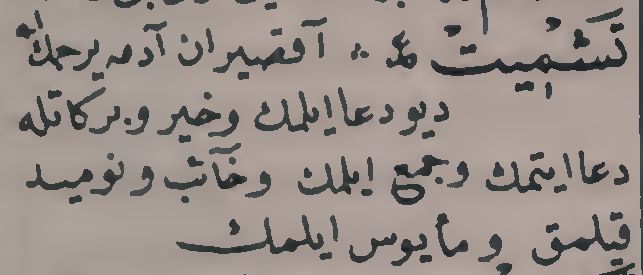 تشميت ع ∴ آقصيران آدمه يرحمك
ديو دعا ايلمك وخير وبركاتله
دعا ايتمك وجمع ايلمك وخائب ونوميد
قيلمق ومأيوس ايلمك